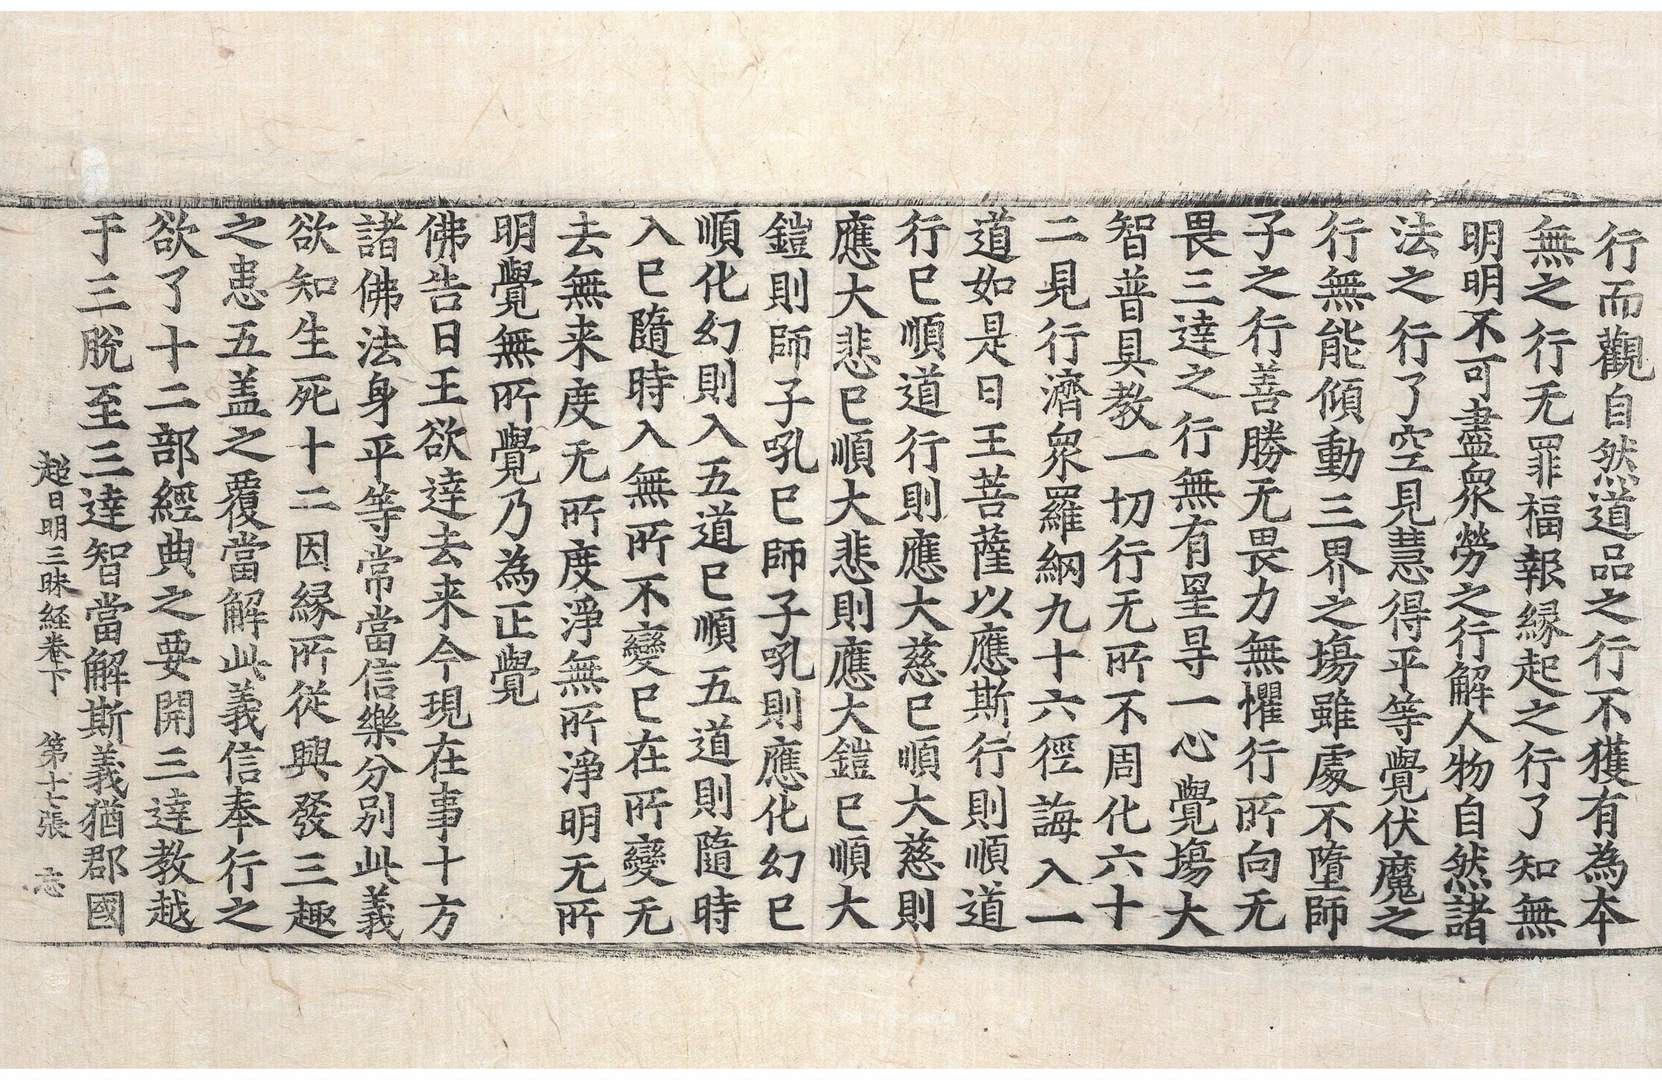 行而觀自然道品之行不獲有為本
無之行无罪福報緣起之行了知無
明明不可盡衆勞之行解人物自然諸
法之行了空見慧得平等覺伏魔之
行無能傾動三界之場雖處不墮師
子之行善勝无畏力無懼行所向无
畏三達之行無有罣㝵一心覺場大
智普具教一切行无所不周化六十
二見行濟衆羅網九十六徑誨入一
道如是日王菩薩以應斯行則順道
行已順道行則應大慈已順大慈則
應大悲已順大悲則應大鎧已順大
鎧則師子吼已師子吼則應化幻已
順化幻則入五道已順五道則隨時
入已隨時入無所不變已在所變无
去無来度无所度淨無所淨明无所
明覺無所覺乃為正覺
佛告日王欲達去来今現在事十方
諸佛法身平等常當信樂分別此義
欲知生死十二因緣所從興發三趣
之患五盖之覆當解此義信奉行之
欲了十二部經典之要開三達教越
于三脫至三達智當解斯義猶郡國
超日明三昧経卷下　第十七張　忘